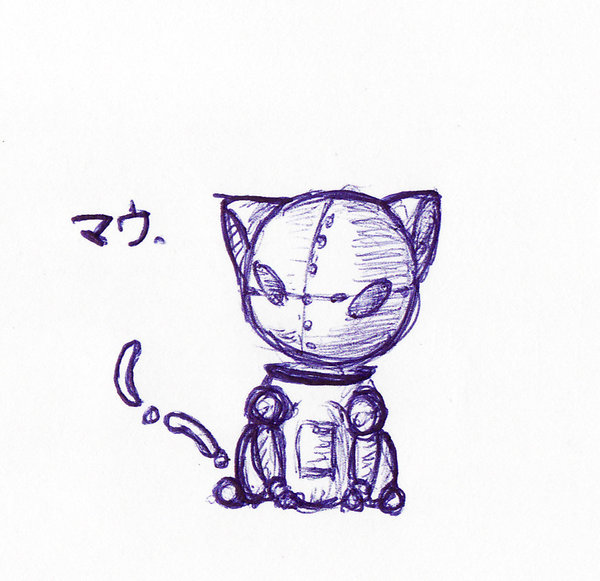 マウ.